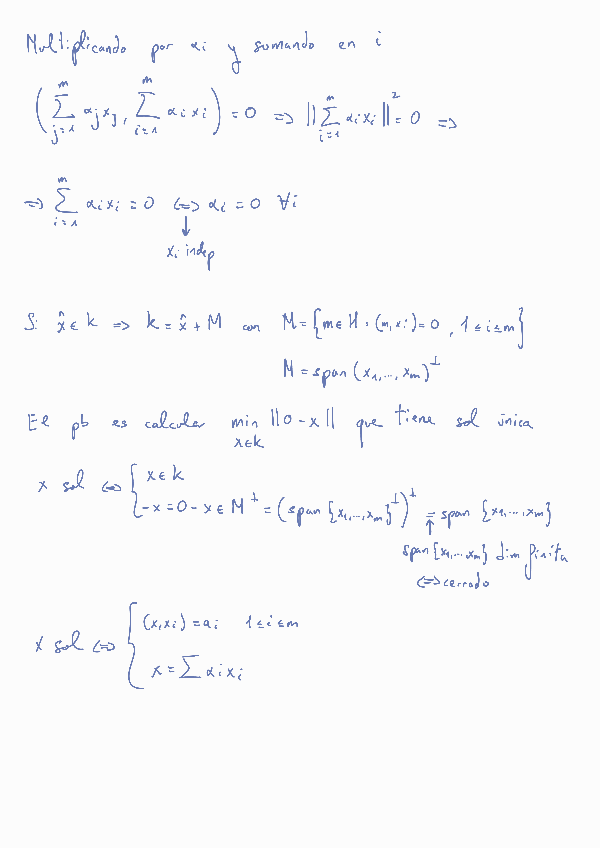 Multiplicando por αi y sumando en i
( ∑_{j=1}^{m} αj xj , ∑_{i=1}^{m} αi xi ) = 0 => || ∑_{i=1}^{m} αi xi ||² = 0 =>
=> ∑_{i=1}^{m} αi xi = 0 <=> αi = 0 ∀i
↓
xi indep
Si x̂ ∈ k => k = x̂ + M con M = {m ∈ H : (m, xi) = 0 , 1 ≤ i ≤ m}
M = span (x1, ..., xm)^⊥
El pb es calcular min_{x∈k} || 0 - x || que tiene sol única
x sol <=> { x ∈ k
-x = 0 - x ∈ M^⊥ = (span {x1, ..., xm}^⊥)^⊥ = span {x1, ..., xm}
↑
span {x1, ..., xm} dim finita
<=> cerrado
x sol <=> { (x, xi) = ai 1 ≤ i ≤ m
x = ∑ αi xi